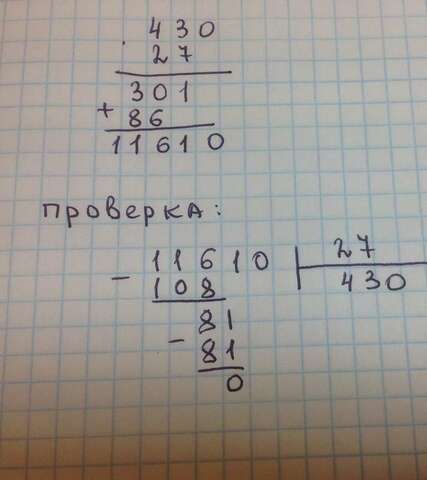 430
27
301
+ 86
11610
ПРОВЕРКА:
- 11610 27
108 430
81
- 81
0